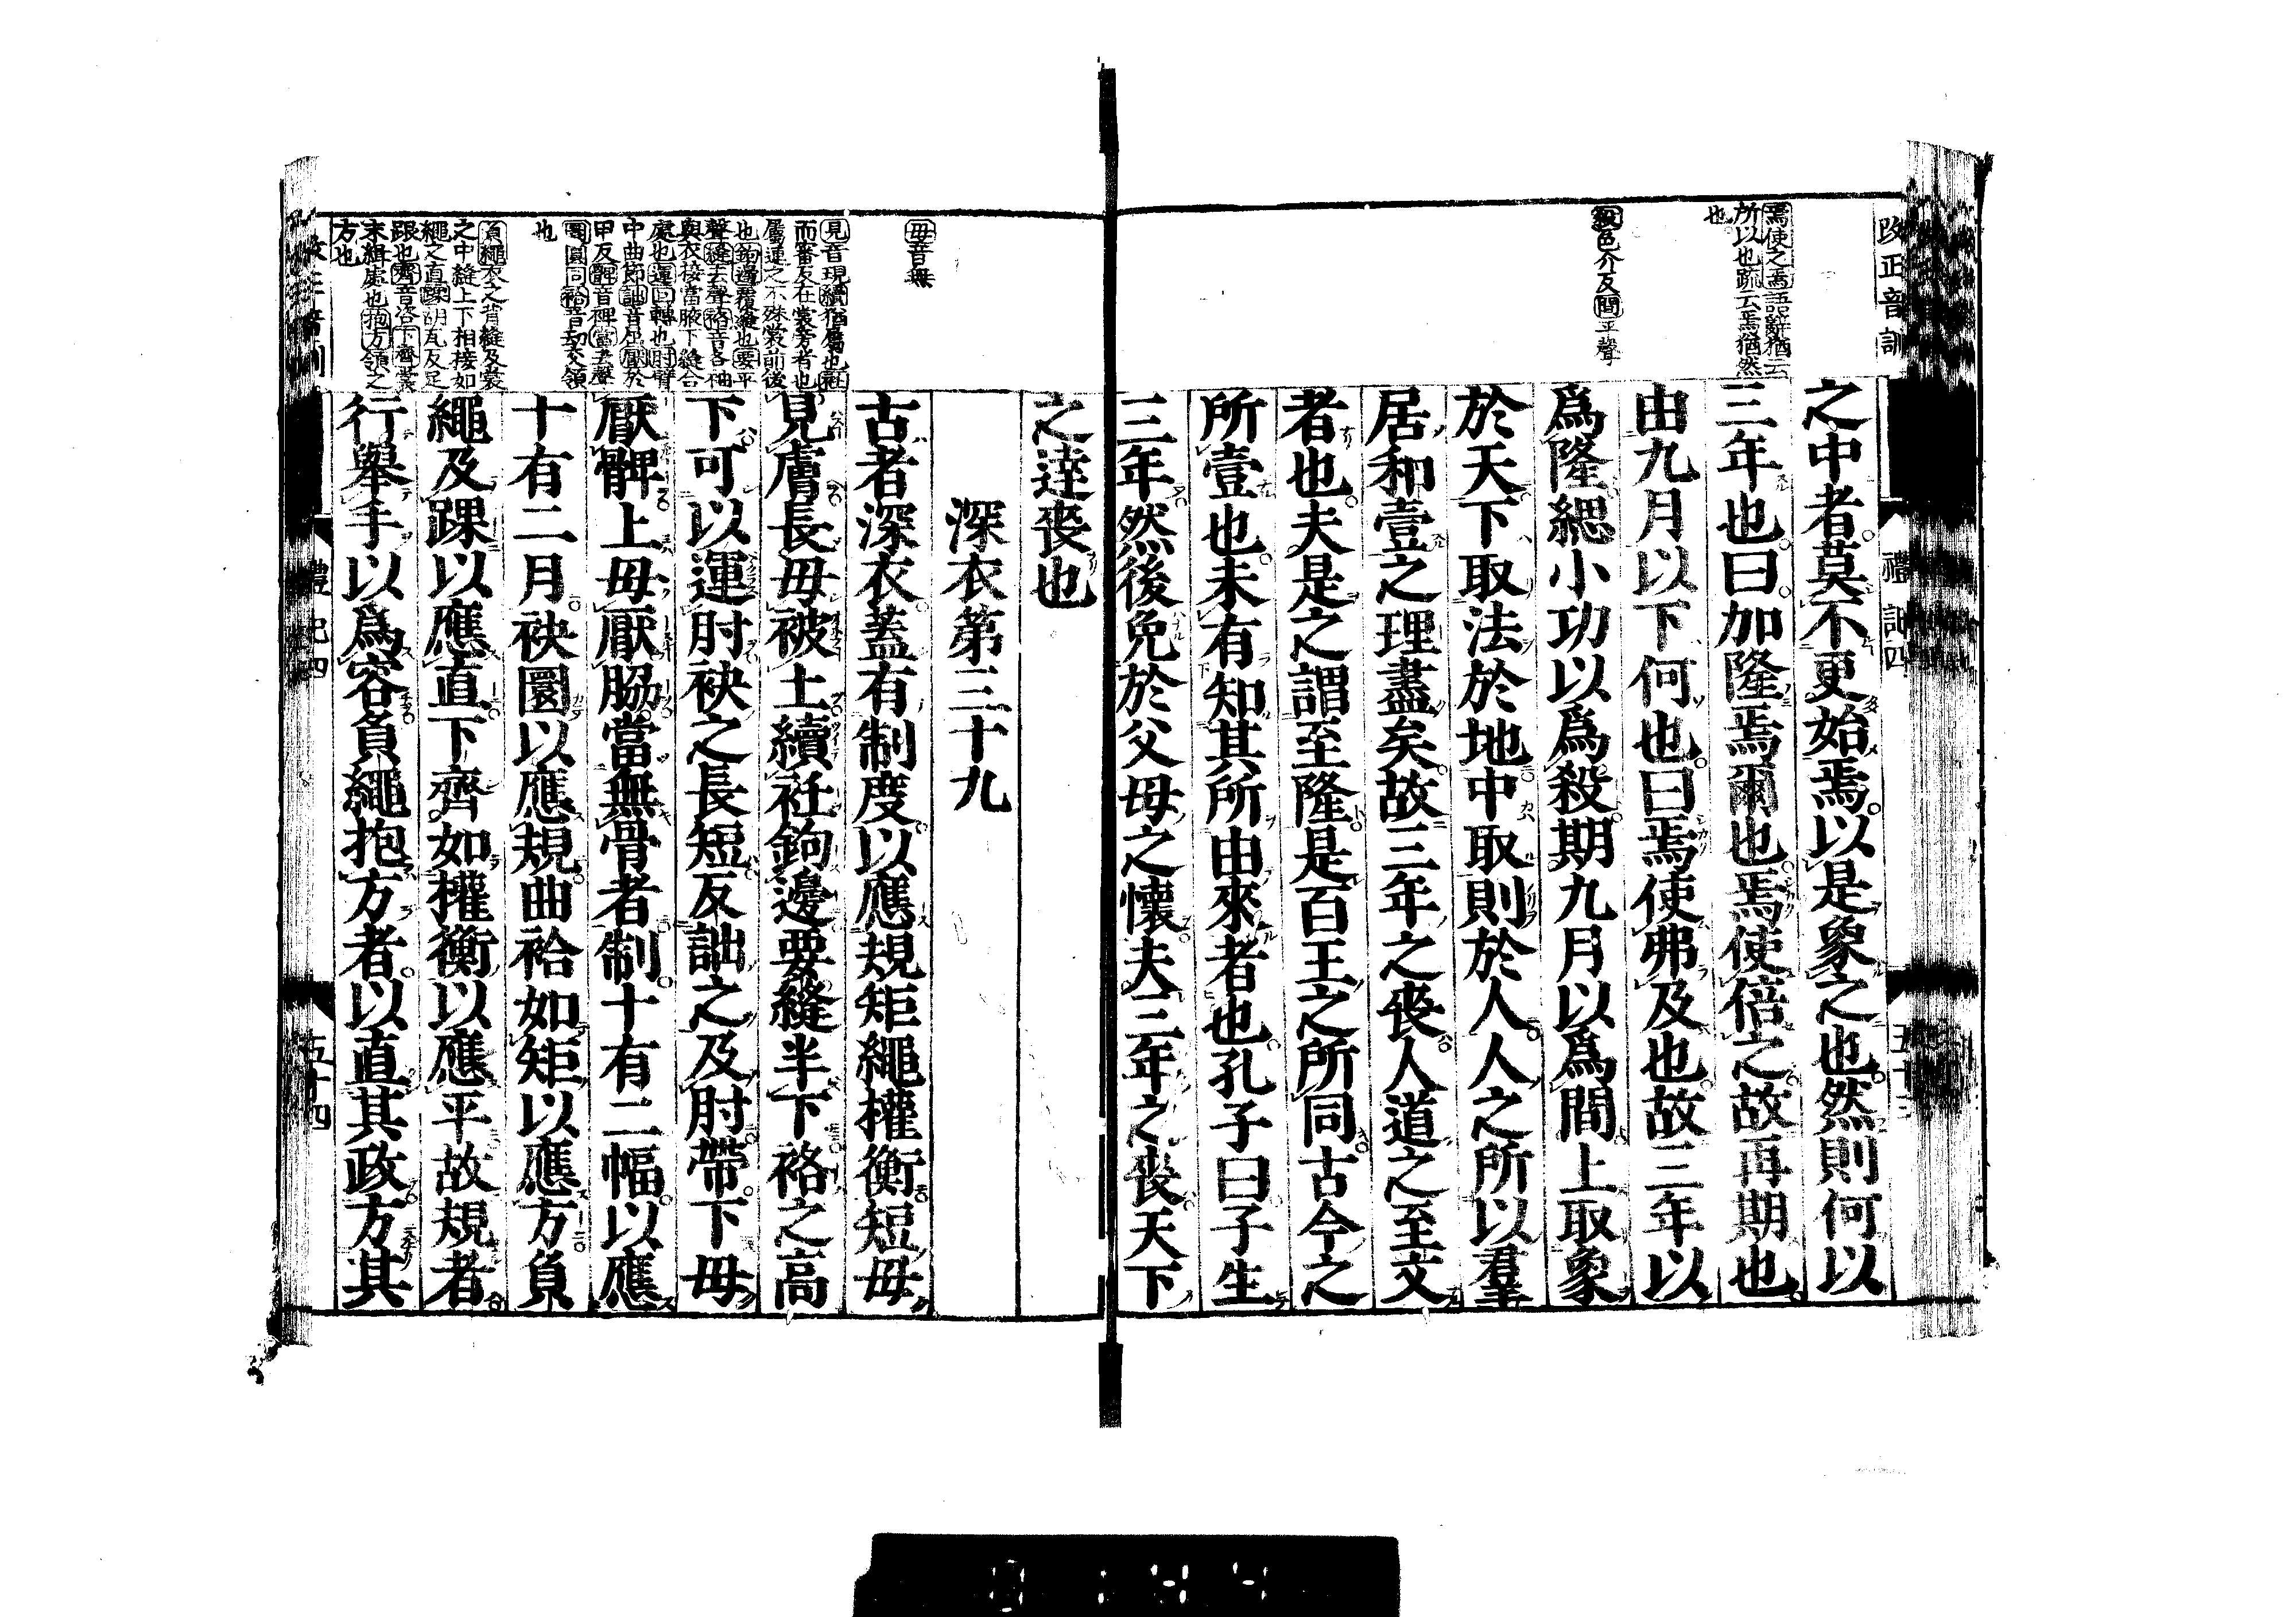 改正音訓
禮記四
焉使之焉語辭猶云
所以也疏云焉猶然
也
殺色介反間平聲
之中者莫不更始焉以是象之也然則何以
三年也曰加隆焉爾也焉使倍之故再期也
由九月以下何也曰焉使弗及也故三年以
爲隆緦小功以爲殺期九月以爲間上取象
於天下取法於地中取則於人人之所以羣
居和壹之理盡矣故三年之喪人道之至文
者也夫是之謂至隆是百王之所同古今之
所壹也未有知其所由來者也孔子曰子生
三年然後免於父母之懷夫三年之喪天下
之達喪也
深衣第三十九
毋音無
見音現續猶屬也衽
而審反在裳旁者也
屬連之不殊裳前後
也鉤邊覆縫也要平
聲縫去聲袼音各袖
與衣接當腋下縫合
處也運回轉也肘臂
中曲節詘音屈厭於
甲反髀音婢當去聲
圜圓同袷音劫交領
也
負繩衣之背縫及裳
之中縫上下相接如
繩之直踝胡瓦反足
跟也齊音咨下齊裳
末緝處也抱方領之
方也
古者深衣蓋有制度以應規矩繩權衡短毋
見膚長毋被土續衽鉤邊要縫半下袼之高
下可以運肘袂之長短反詘之及肘帶下毋
厭髀上毋厭脇當無骨者制十有二幅以應
十有二月袂圜以應規曲袷如矩以應方負
繩及踝以應直下齊如權衡以應平故規者
行舉手以爲容負繩抱方者以直其政方其
禮記四
五十四